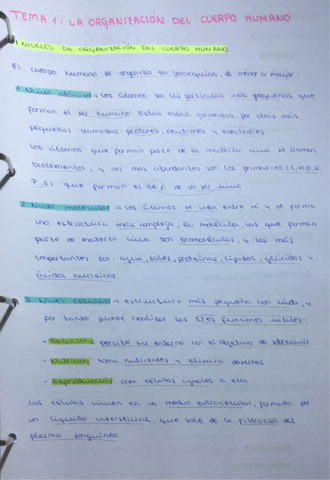 TEMA 1: LA ORGANIZACIÓN DEL CUERPO HUMANO
NIVELES DE ORGANIZACIÓN DEL CUERPO HUMANO
El cuerpo humano se organiza en jerarquías, de menor a mayor:
1. Nivel atómico → los átomos son las partículas más pequeñas que
forman el ser humano. Estos están formados por otras más
pequeñas llamadas protones, neutrones y electrones
Los átomos que forman parte de la materia viva se llaman
bioelementos, y los más abundantes son los primarios (C, H, O, N,
P, S), que forman el 96% de un ser vivo
2. Nivel molecular → los átomos se unen entre sí y se forma
una estructura más compleja, la molécula. Las que forman
parte de materia viva son biomoléculas, y las más
importantes son: agua, sales, proteínas, lípidos, glúcidos y
ácidos nucleicos.
3. Nivel celular → estructura más pequeña con vida, y
por tanto puede realizar las tres funciones vitales:
- Relación: percibe su entorno con el objetivo de sobrevivir
- Nutrición: toma nutrientes y elimina desechos
- Reproducción: crea células iguales a ella
Las células viven en un medio extracelular, formado por
un líquido intersticial, que sale de la filtración del
plasma sanguíneo.